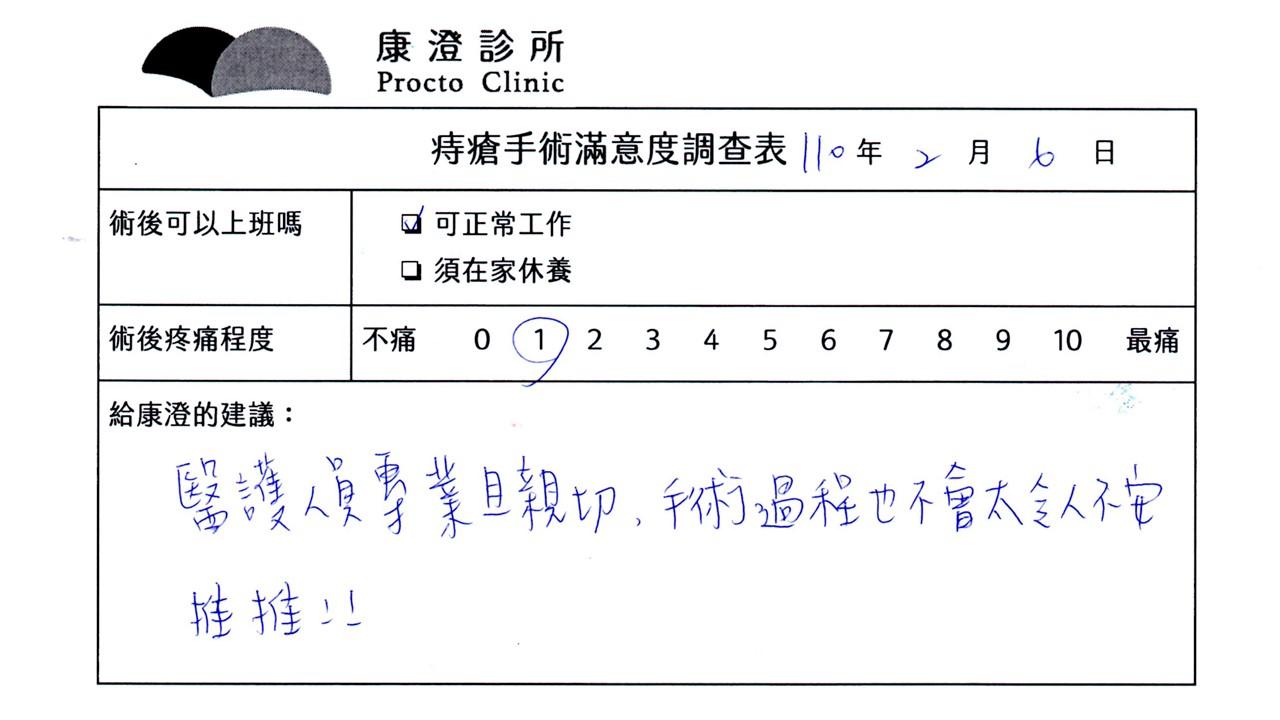 康澄診所
Procto Clinic
痔瘡手術滿意度調查表 110年 2 月 6 日
術後可以上班嗎
可正常工作
須在家休養
術後疼痛程度 不痛 0 1 2 3 4 5 6 7 8 9 10 最痛
給康澄的建議：
醫護人員專業且親切，手術過程也不會太令人不安
推推!!